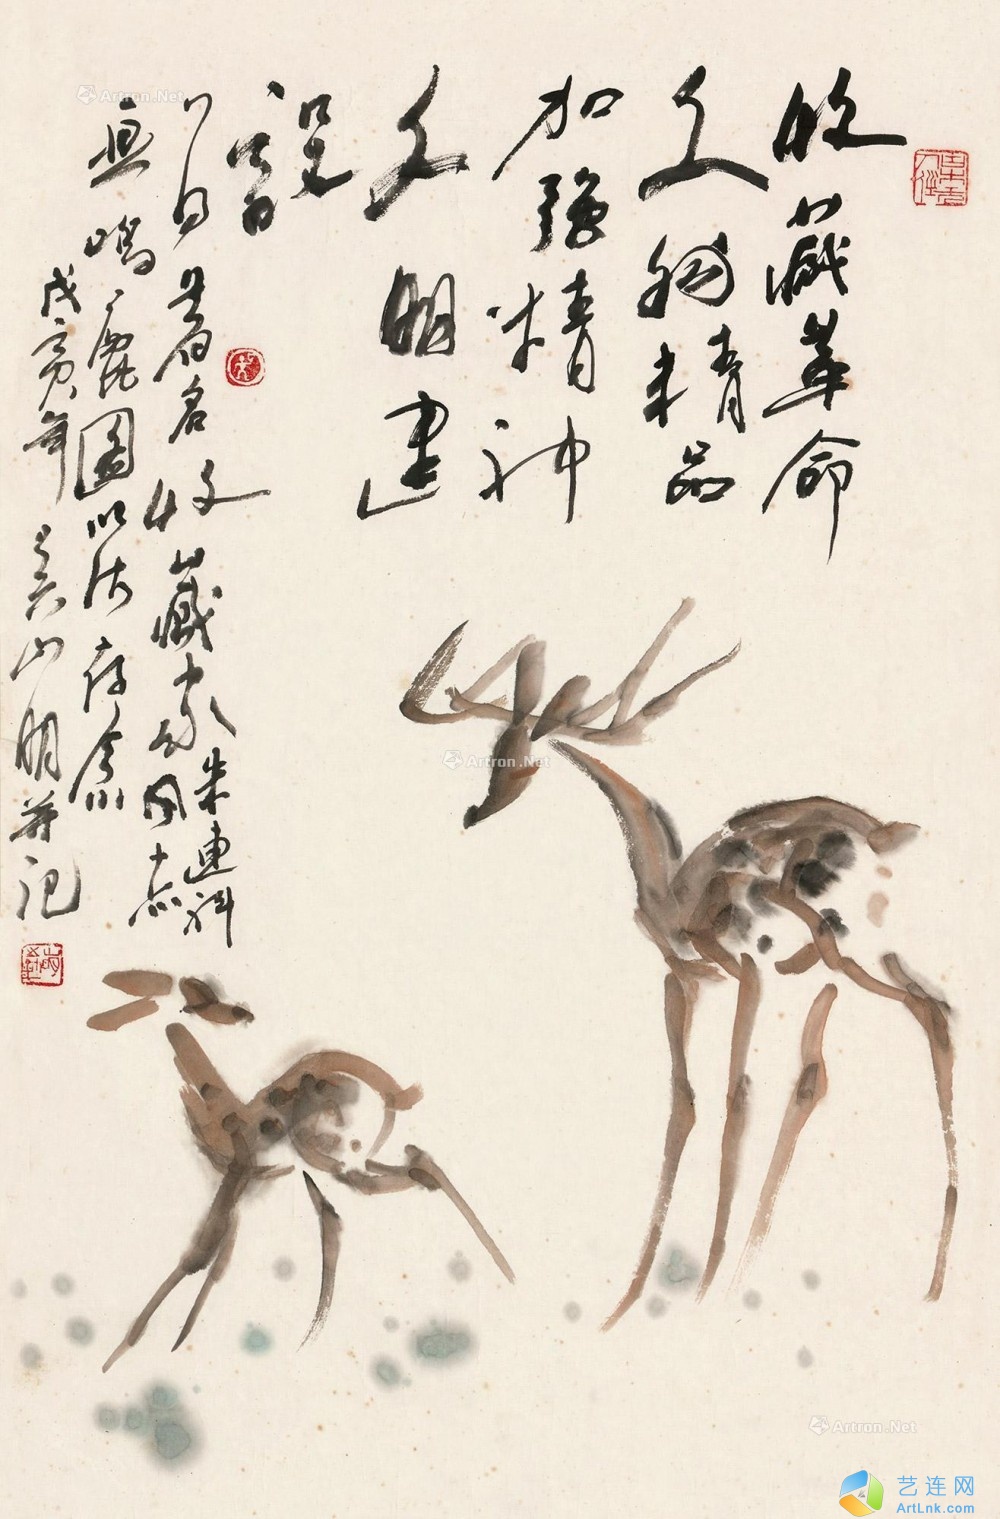 收藏革命
文物精品
加強精神
文明建
設
著名收藏家朱連科同志
鳴鹿圖以 存念
戊寅年 吴山明并记
Artron.Net
Artron.Net
Artron.Net
艺连网
ArtLnk.com